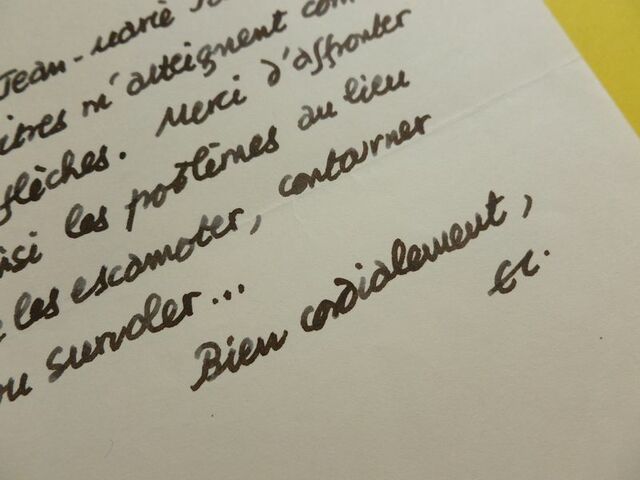 Jean-Marie
m'atteignent
flèches. Merci d'affronter
les problèmes au lieu
les escamoter, contourner
ou survoler...
Bien cordialement,